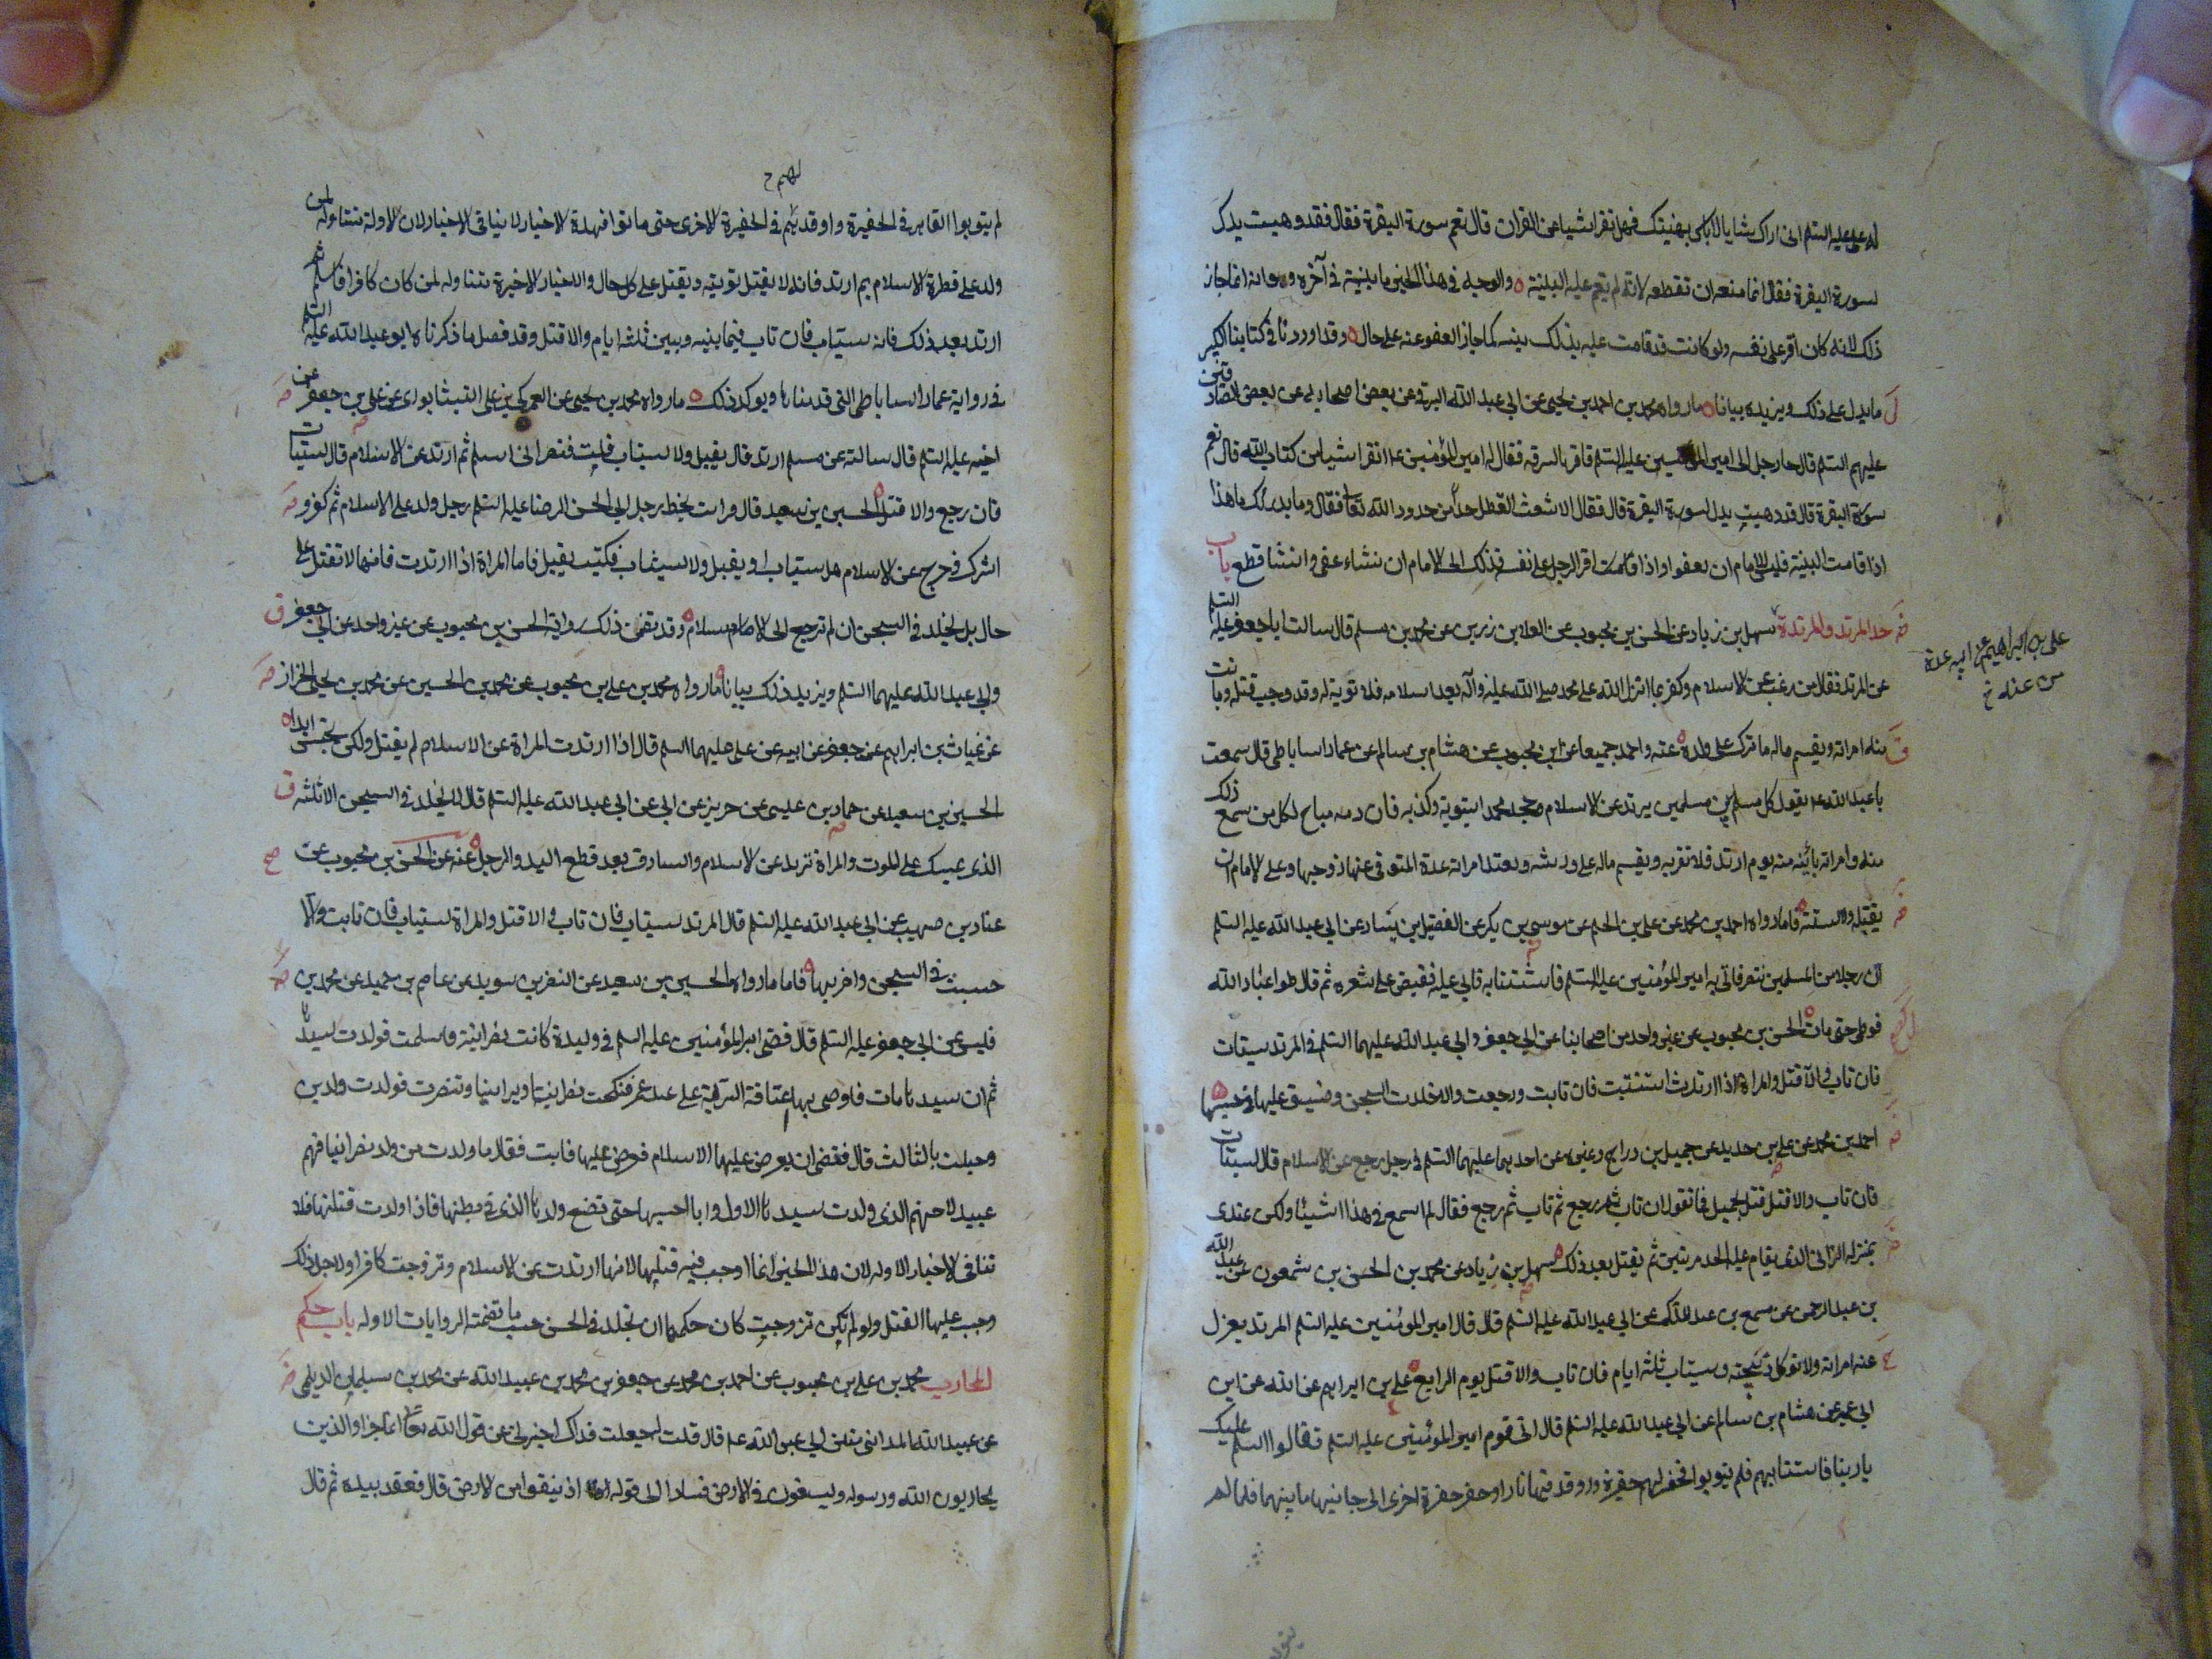 له علي عليه السلم اني اراك شابا لا باس بهيئتك فهل تقرا شيا من القران قال نعم سورة البقرة فقال فقد وهبت يدك
لسورة البقرة فقال انما منعه ان تقطعه لانه لم يقم عليه البينة ه والوجه في هذا الخبر ما بينته في آخره وهو انه انما جاز
ذلك لانه كان اقر على نفسه ولو كانت قد قامت عليه بذلك بينه لما جاز العفو عنه على حال ه وقد اوردنا في كتابنا الكبير
ما يدل على ذلك ويزيده بيانا ه ما رواه محمد بن احمد بن يحيى عن ابي عبد الله البرقي عن بعض اصحابه عن بعض الصادقين
عليهم السلم قال جا رجل الى امير المؤمنين عليه السلم فاقر بالسرقه فقال له امير المؤمنين ع اتقرا شيا من كتاب الله قال نعم
سورة البقرة قال قد وهبت يدك لسورة البقرة قال فقال الاشعث اتعطل حدا من حدود الله تعا فقال وما يدريك ما هذا
اذا قامت البينة فليس للامام ان يعفو اواذا اقر الرجل على نفسه فذلك الى الامام ان شاء عفى وان شا قطع باب
حد المرتد والمرتدة سهل بن زياد عن الحسن بن محبوب عن العلا بن زرين عن محمد بن مسلم قال سالت ابا جعفر عليه السلم
علي بن ابراهيم عن ابيه عدة من عنه خ
عن المرتد فقال من رغب عن الاسلام وكفر بما انزل الله على محمد صلى الله عليه وآله بعد اسلامه فلا توبة له وقد وجب قتله وبانت
منه امراته ويقسم ماله ما ترك على ولده ه عنه واحمد جميعا عن ابن محبوب عن هشام بن سالم عن عمار الساباطي قال سمعت
ابا عبد الله ع يقول كل مسلم بين مسلمين يرتد عن الاسلام وجحد محمدا نبوته وكذبه فان دمه مباح لكل من سمع ذلك
منه وامراته بائنه منه يوم ارتد فلا تقربه ويقسم ماله على ورثته وتعتد امراته عدة المتوفى عنها زوجها وعلى الامام ان
يقتله ولا يستتيبه ه فاما رواه احمد بن محمد عن علي بن الحكم عن موسى بن بكر عن الفضيل بن يسار عن ابي عبد الله عليه السلم
ان رجلا من المسلمين تنصر فاتي به امير المؤمنين عليه السلم فاستتابه فابى عليه فقبض على شعره ثم قال طوا عباد الله
فوطى حتى مات ه الحسن بن محبوب عن غير واحد من اصحابنا عن ابي جعفر وابي عبد الله عليهما السلم في المرتد يستتاب
فان تاب والا قتل والمراة اذا ارتدت استتيبت فان تابت ورجعت والا خلدت السجن وضيق عليها في حبسها ه
احمد بن محمد عن علي بن حديد عن جميل بن دراج وغيره عن احدهما عليهما السلم في رجل رجع عن الاسلام قال يستتاب
فان تاب والا قتل قيل لجميل فما تقول ان تاب ثم رجع ثم تاب ثم رجع فقال لم اسمع في هذا شيئا ولكن عندي
بمنزلة الزاني الذي يقام عليه الحد مرتين ثم يقتل بعد ذلك ه سهل بن زياد عن محمد بن الحسن بن شمعون عن عبد الله
بن عبد الرحمن عن مسمع بن عبد الملك عن ابي عبد الله عليه السلم قال قال امير المؤمنين عليه السلم المرتد يعزل
عنه امراته ولا توكل ذبيحته ويستتاب ثلثة ايام فان تاب والا قتل يوم الرابع ه علي بن ابراهيم عن ابيه عن ابن
ابي عمير عن هشام بن سالم عن ابي عبد الله عليه السلم قال اتى قوم امير المؤمنين عليه السلم فقالوا السلم عليك
يا ربنا فاستتابهم فلم يتوبوا فحفر لهم حفيرة واوقد فيها نارا وحفر حفرة اخرى الى جانبها ما بينهما فلما لم
لهم خ
لم يتوبوا القاهم في الحفيرة واوقد في الحفيرة الاخرى حتى ماتوا فهذه الاخبار لا ينافي الاخبار لان الاولة متناولة لمن
ولد على فطرة الاسلام ثم ارتد فانه لا يقبل توبته ويقتل على كل حال والاخبار الاخيرة متناوله لمن كان كافرا فاسلم ثم
ارتد بعد ذلك فانه يستتاب فان تاب فيما بينه وبين ثلثه ايام والا قتل وقد فصل ما ذكرناه ابو عبد الله عليه السلم
في رواية عمار الساباطي التي قدمناها ويوكد ذلك ه ما رواه محمد بن يحيى عن العمركي بن علي النيشابوري عن علي بن جعفر عن
اخيه عليه السلم قال سالته عن مسلم ارتد قال يقتل ولا يستتاب قلت فنصراني اسلم ثم ارتد عن الاسلام قال يستتاب
فان رجع والا قتل ه الحسين بن سعيد قال قرات بخط رجل الى ابي الحسن الرضا عليه السلم رجل ولد على الاسلام ثم كفر و
اشرك وخرج عن الاسلام هل يستتاب او يقتل ولا يستتاب فكتب يقتل فاما المراة اذا ارتدت فانها لا تقتل على
حال بل تخلد في السجن ان لم ترجع الى الاسلام ه وقد تقدم ذلك رواية الحسن بن محبوب عن غير واحد عن ابي جعفر
وابي عبد الله عليهما السلم ويزيد ذلك بيانا ه ما رواه محمد بن علي بن محبوب عن محمد بن الحسين عن محمد بن يحيى الخزاز
عن غياث بن ابراهيم عن جعفر عن ابيه عن علي عليهما السلم قال اذا ارتدت المراة عن الاسلام لم يقتل ولكن تحبس ابدا ه
الحسين بن سعيد عن حماد بن عيسى عن حريز عن ابي عبد الله عليه السلم قال لا يخلد في السجن الا ثلثه
الذي يمسك على الموت والمراة ترتد عن الاسلام والسارق بعد قطع اليد والرجل ه عنه عن الحسن بن محبوب عن
عباد بن صهيب عن ابي عبد الله عليه السلم قال المرتد يستتاب فان تاب والا قتل والمراة تستتاب فان تابت والا
حبست في السجن واضر بها ه فاما ما رواه الحسين بن سعيد عن النضر بن سويد عن عاصم بن حميد عن محمد بن
قيس عن ابي جعفر عليه السلم قال قضى امير المؤمنين عليه السلم في وليدة كانت نصرانية فاسلمت فولدت لسيدها
ثم ان سيدها مات فاوصى بها عتاقة السرية على عهد عمر فنكحت نصرانيا ديرانيا وتنصرت فولدت ولدين
وحبلت بالثالث قال فقضى ان يعرض عليها الاسلام فعرض عليها فابت فقال ما ولدت من ولد نصرانيا فهم
عبيد لاخيهم الذي ولدت لسيدها الاول وانا احبسها حتى تضع ولدها الذي في بطنها فاذا ولدت قتلتها فلا
تنافي الاخبار الاوله لان هذا الخبر انما اوجب فيه قتلها لانها ارتدت عن الاسلام وتزوجت كافرا ولاجل ذلك
وجب عليها القتل ولو لم تكن تزوجت كان حكمها ان تخلد في الحبس حسب ما تضمنته الروايات الاوله باب حكم
المحارب محمد بن علي بن محبوب عن احمد بن محمد عن جعفر بن محمد بن عبيد الله عن محمد بن سليمان الديلمي
عن عبيد الله المدائني عن ابي عبد الله ع قال قلت له جعلت فداك اخبرني عن قول الله تعا انما جزاو الذين
يحاربون الله ورسوله ويسعون في الارض فسادا الى قوله او ينفوا من الارض قال فعقد بيده ثم قال